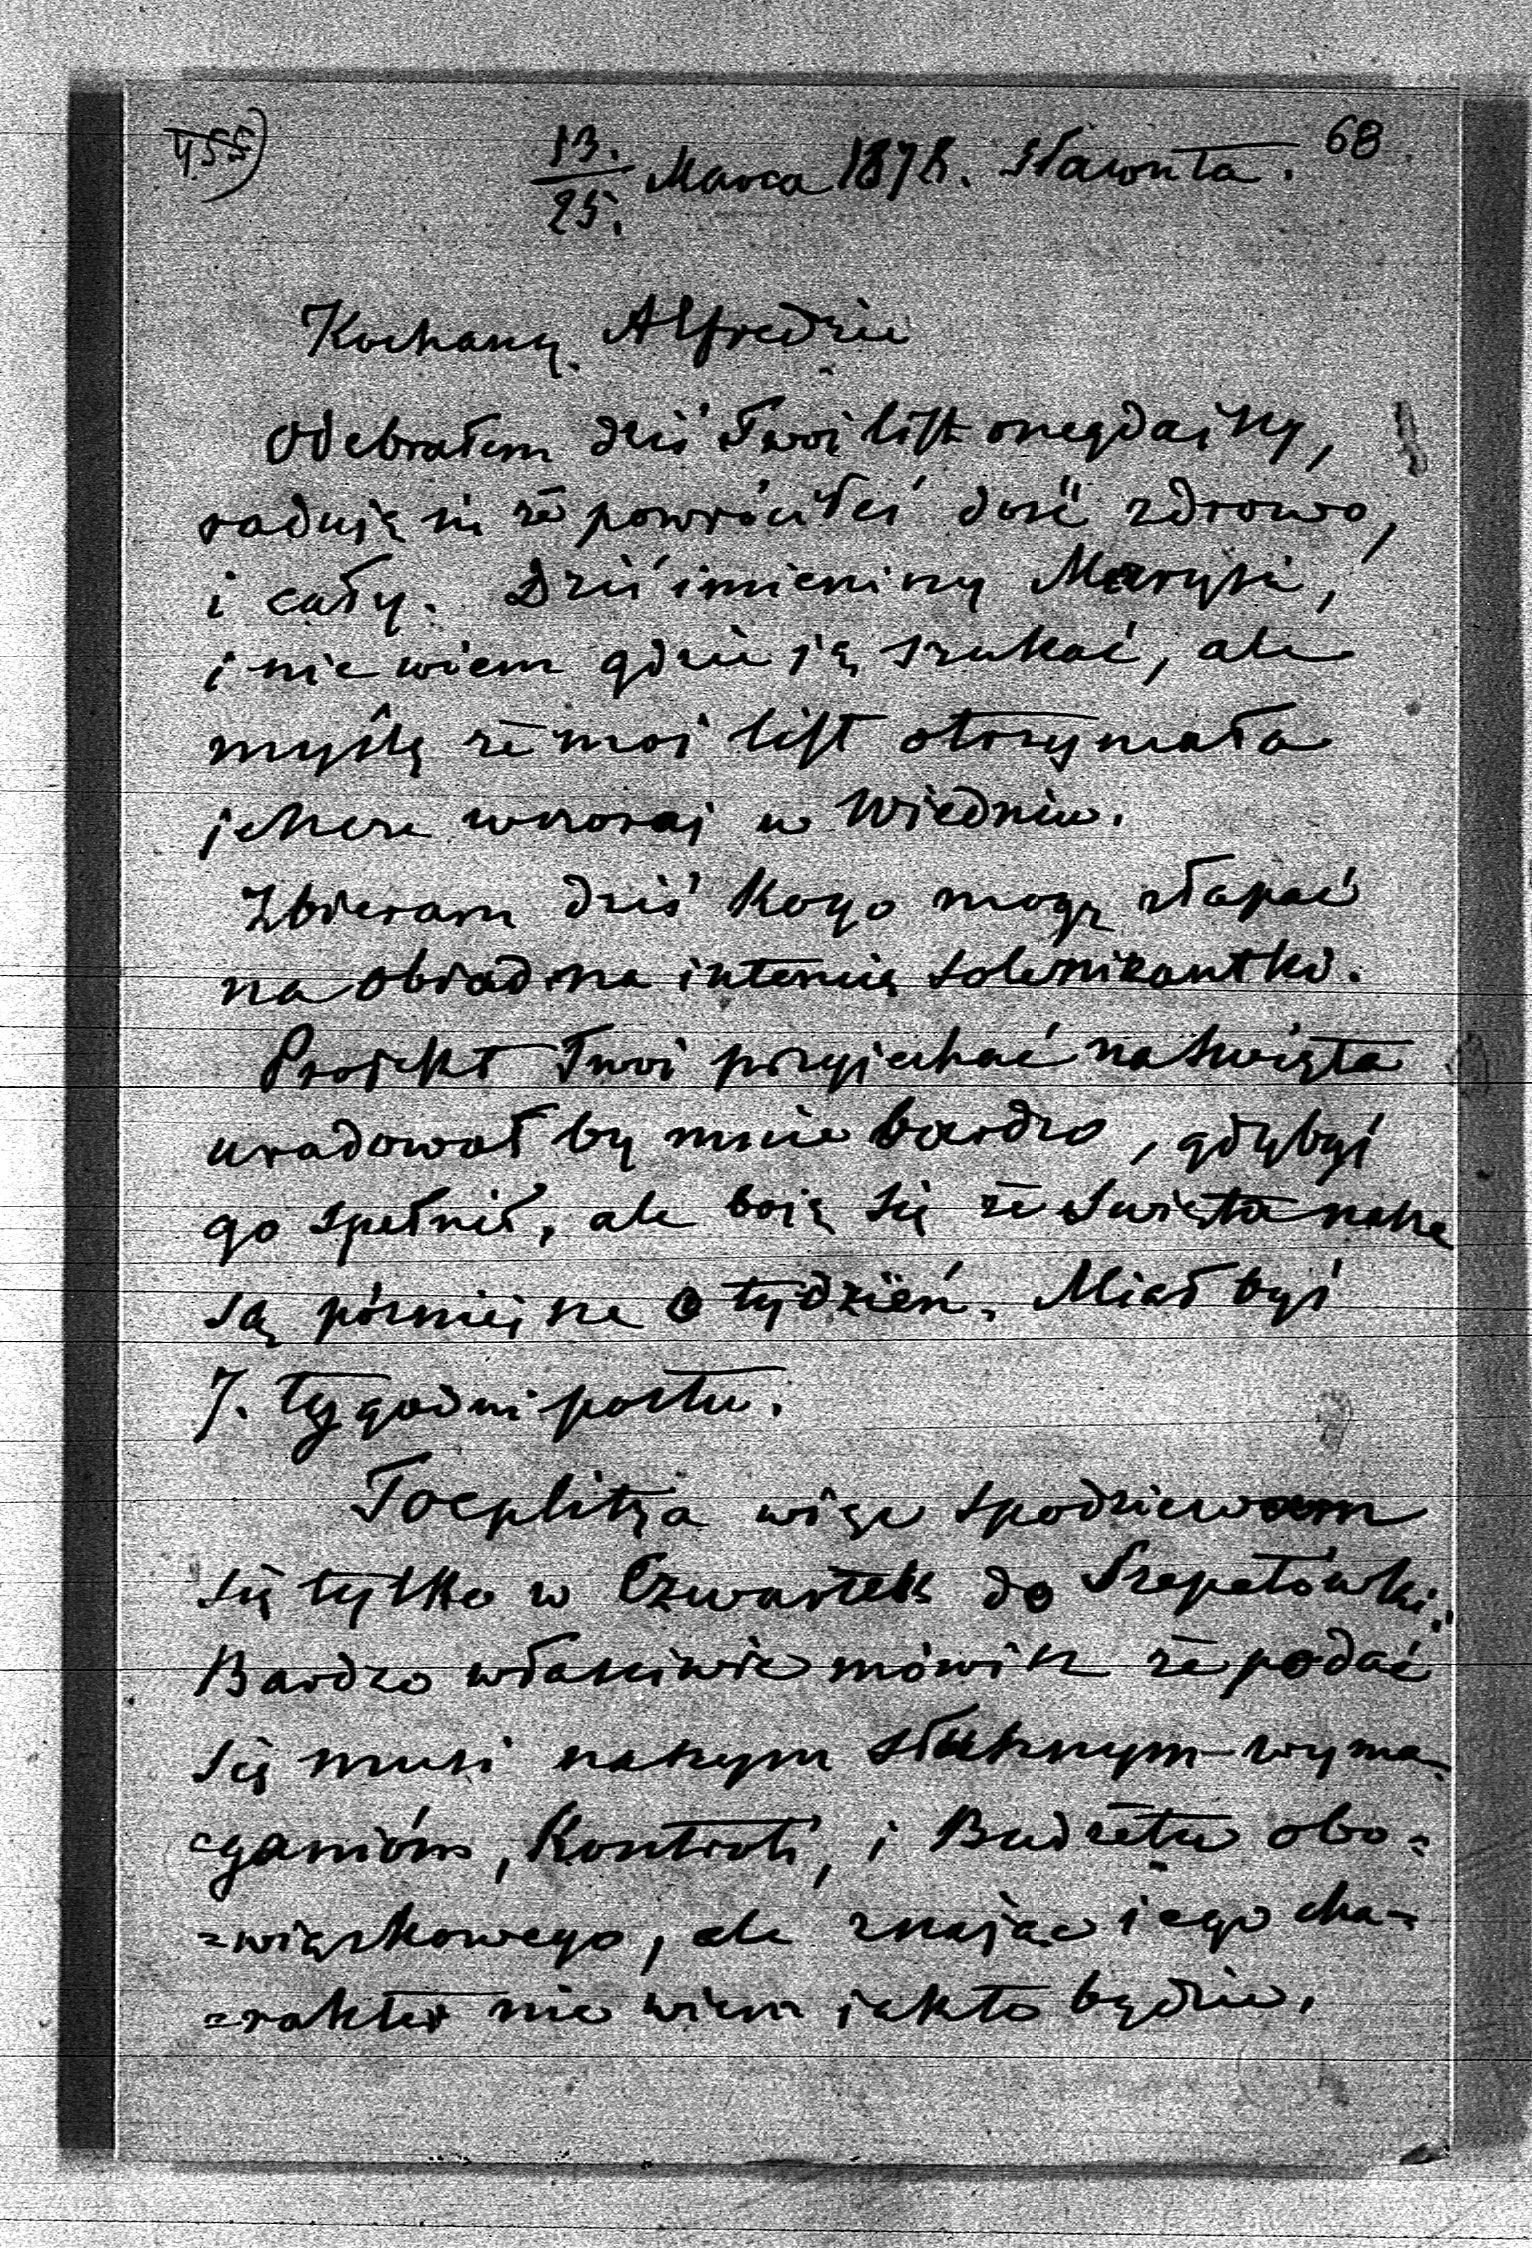 455)
13./25. Marca 1878. Sławuta. 68
Kochany Alfredzie
Odebrałem dziś Twoi list onegdaiszy,
raduję się że powróciłeś dość zdrowo,
i cały. Dziś imieniny Marysi,
i nie wiem gdzie ią szukać, ale
myślę że moi list otrzymała
jeszcze wczoraj w Wiedniu.
Zbieram dziś kogo mogę złapać
na obiad na intencię solenizantki.
Projekt Twoi przyjechać na Święta
uradował by mnie bardzo, gdybyś
go spełnił, ale boię się że Święta nasze
są późniejsze o tydzień. Miał być
7. tygodni postu.
Toeplitza więc spodziewam
się tylko w Czwartek do Szepetówki.
Bardzo właściwie mówisz że podać
się musi naszym słusznym wyma-
=ganióm, Kontroli, i Budżetu obo=
=wiąskowego, ale znając iego cha=
=rakter nie wiem iak to będzie.